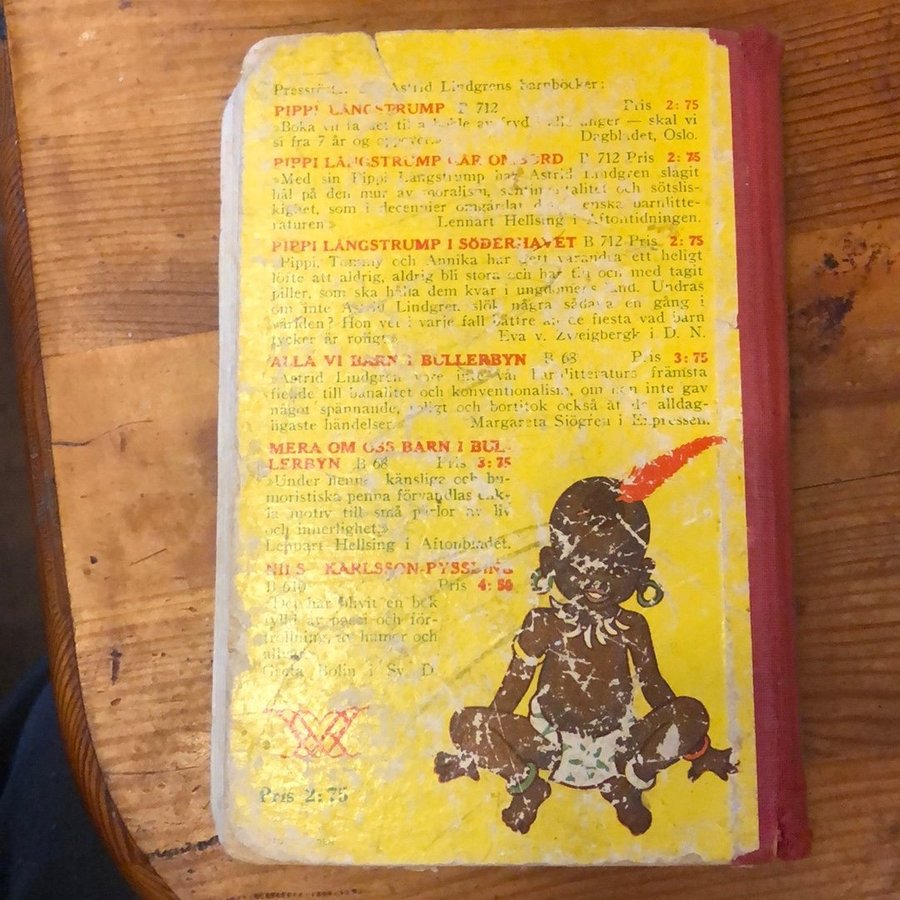 Astrid Lindgrens barnböcker:
PIPPI LÅNGSTRUMP B 712 Pris 2:75
»Boka vil fa det til a av fryd — skal vi
si fra 7 år og Dagbladet, Oslo.
PIPPI LÅNGSTRUMP GÅR OMBORD B 712 Pris 2:75
»Med sin Pippi Långstrump har Astrid Lindgren slagit
hål på den mur av moralism, sentimentalitet och sötslis-
kighet, som i decennier omgärdat den svenska barnlitte-
raturen.» Lennart Hellsing i Aftontidningen.
PIPPI LÅNGSTRUMP I SÖDERHAVET B 712 Pris 2:75
»Pippi, Tommy och Annika har gett varandra ett heligt
löfte att aldrig, aldrig bli stora och har till och med tagit
piller, som ska hålla dem kvar i ungdomens land. Undras
om inte Astrid Lindgren slök några sådana en gång i
världen? Hon vet i varje fall bättre än de flesta vad barn
tycker är roligt.» Eva v. Zweigbergk i D. N.
ALLA VI BARN I BULLERBYN B 68 Pris 3:75
»Astrid Lindgren vore inte vår barnlitteraturs främsta
fiende till banalitet och konventionalism, om hon inte gav
något spännande, roligt och bortitok också åt de alldag-
ligaste händelser.» Margareta Sjögren i Expressen.
MERA OM OSS BARN I BUL-
LERBYN B 68 Pris 3:75
»Under hennes känsliga och hu-
moristiska penna förvandlas enk-
la motiv till små pärlor av liv
och innerlighet.»
Lennart Hellsing i Aftonbladet.
NILS KARLSSON-PYSSLING
B 610 Pris 4:50
»Det har blivit en bok
fylld av poesi och för-
trollning, av humor och
allvar.»
Greta Bolin i Sv. D.
Pris 2:75